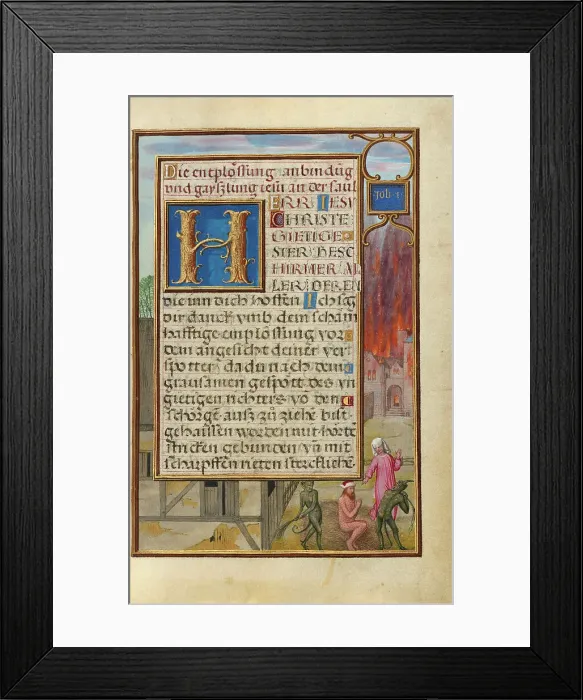 Die entplössung anbindūg
vnd gayszlung iesu an der saul
HERR IESV
CHRISTE
GIETIGE
STER BESC
HIRMER AL
LER DEREN
die inn dich hoffen Ich sag
dir danck vmb dein scham
hafftige emplössung vor
dem angesicht deiner ver
spotter, da du nach dem
grausamen gespött des vn
gietigen richters vō den
schörgē ausz zū ziehē bist
gehaissen worden mit hörtē
stricken gebunden vn̄ mit
scharpffen rieten
Iob· 1